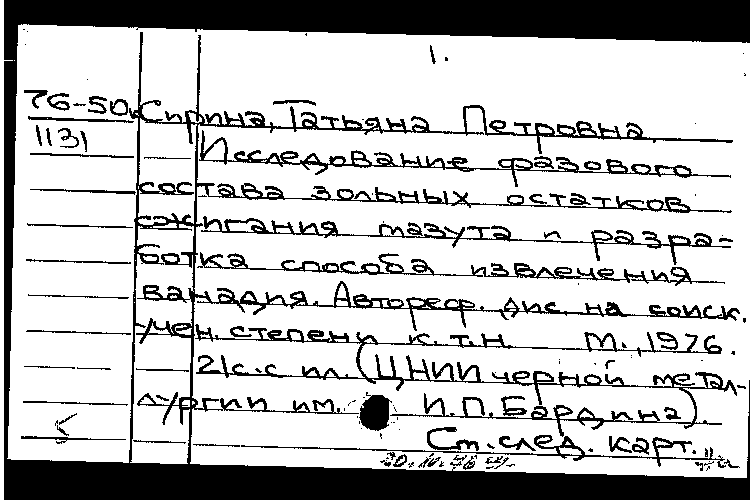 1.
76-50к Сирина, Татьяна Петровна
1131
Исследование фазового
состава зольных остатков
сжигания мазута и разра-
ботка способа извлечения
ванадия. Автореф. дис. на соиск.
учен. степени к. т. н. М., 1976.
21 с. с ил. (ЦНИИ черной метал-
лургии им. И.П. Бардина).
См. след. карт.